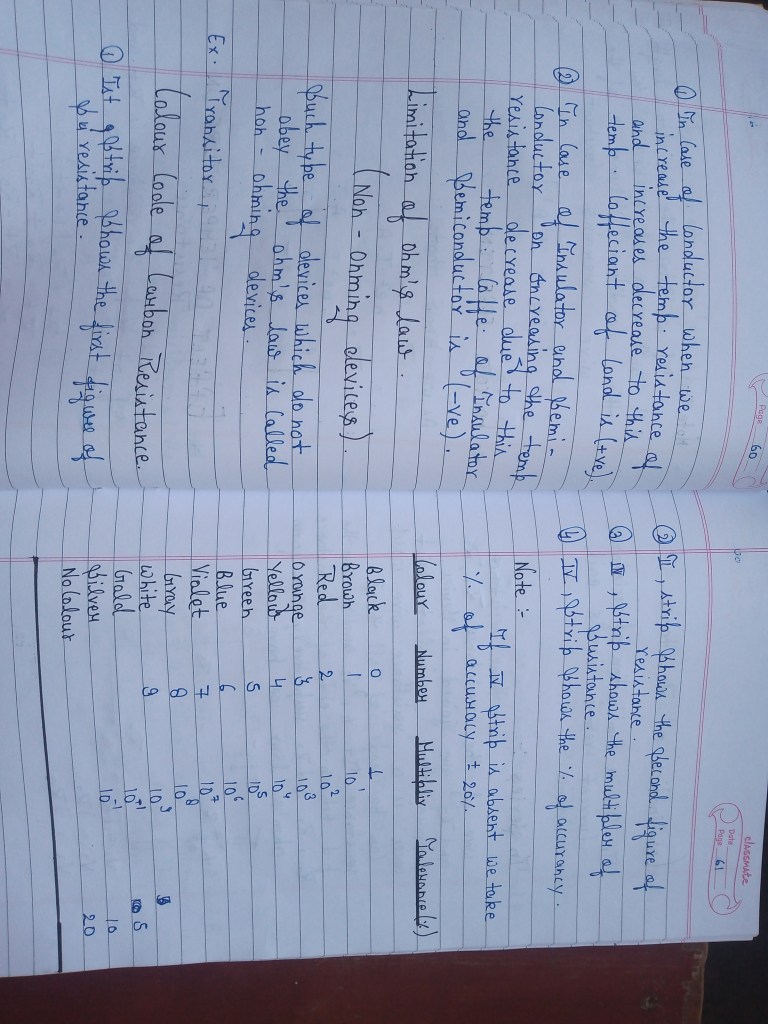 Page 60
① In case of conductor when we
increase the temp. resistance of
and increases decrease to this
temp. cofficiant of cond is (+ve).
② In case of Insulator and semi-
conductor on increasing the temp
resistance decrease due to this
the temp. coffe. of Insulator
and semiconductor is (-ve).
Limitation of ohm's law.
(Non - ohming devices).
Such type of devices which do not
obey the ohm's law is called
non - ohming devices.
Ex. Transitor,
Colour Code of Carbon Resistance.
① Ist strip shows the first figure of
resistance.
classmate
Date
Page 61
② II, strip shows the second figure of
resistance.
③ III, strip shows the multipler of
rusistance.
④ IV, strip shows the % of accurancy.
Note :-
If IV strip is absent we take
% of accuracy ± 20%.
Colour Number Multiplir Tolerance(%)
Black 0 1
Brown 1 10¹
Red 2 10²
Orange 3 10³
Yellow 4 10⁴
Green 5 10⁵
Blue 6 10⁶
Violet 7 10⁷
Gray 8 10⁸
White 9 10⁹
Gold 10⁺¹ 5
Silver 10⁻¹ 10
No Colour 20